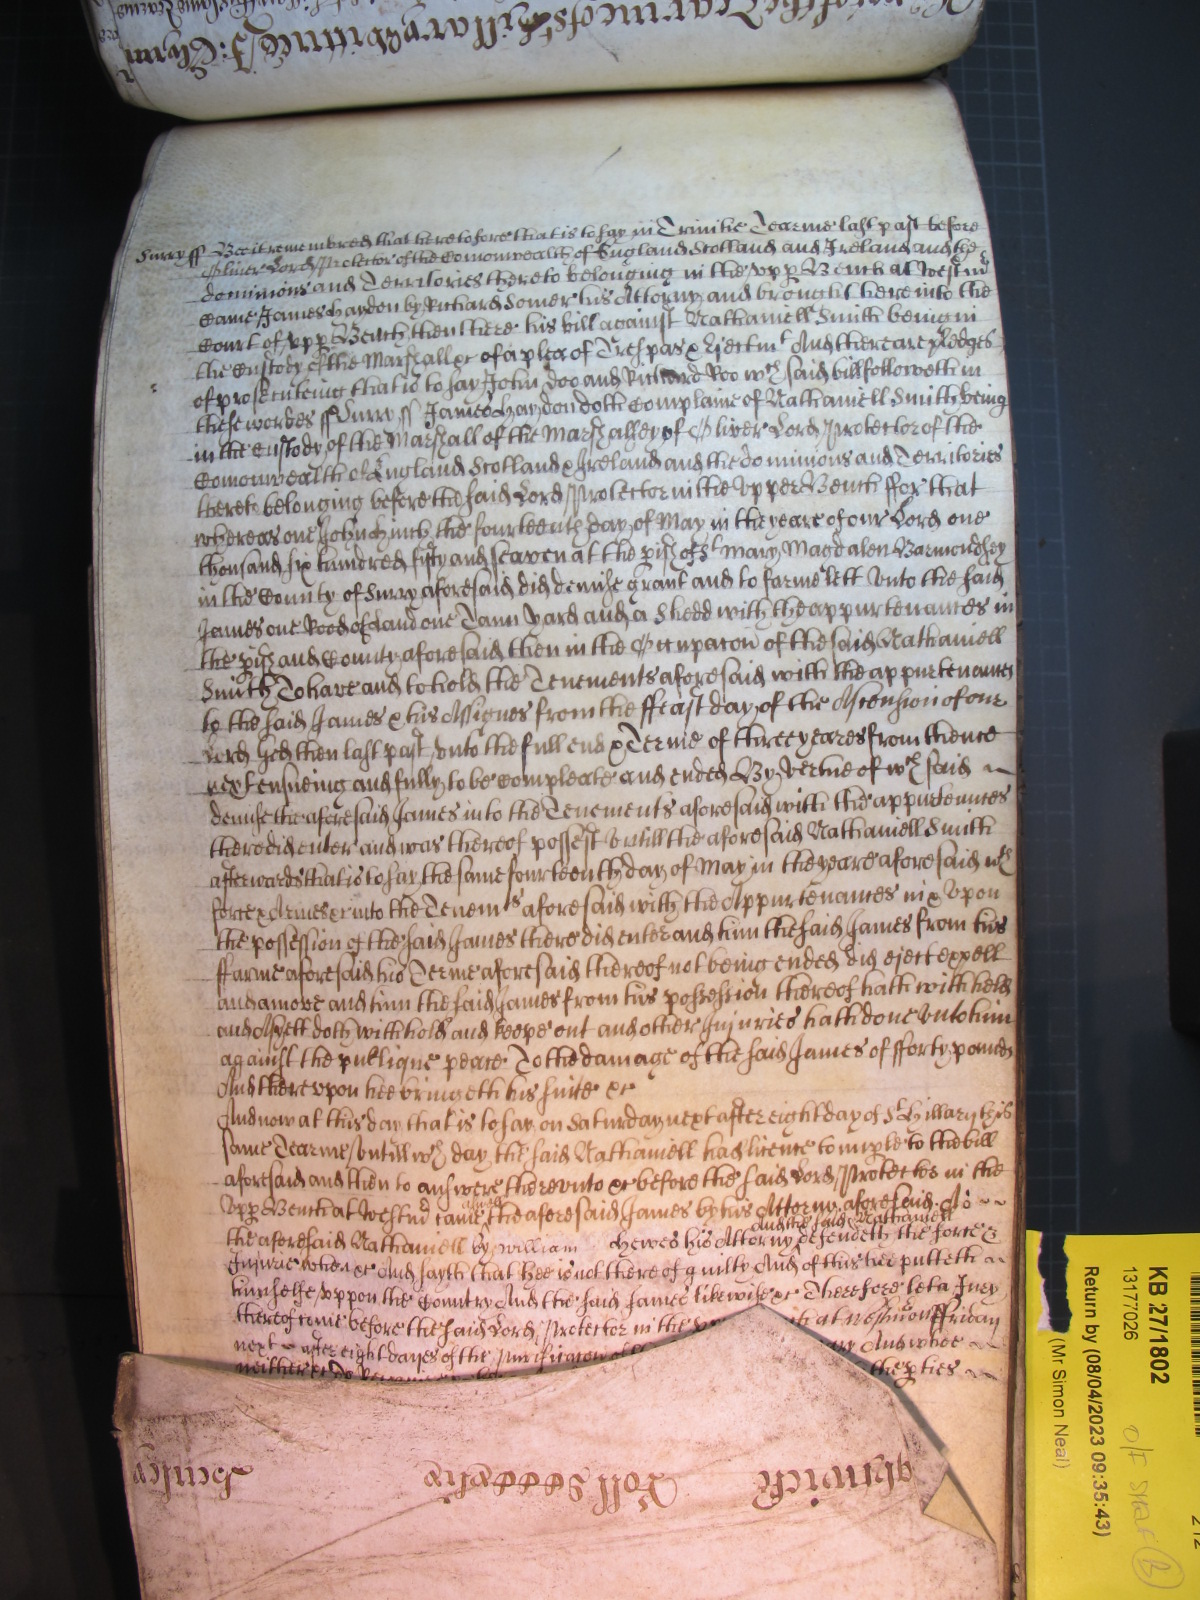 Surry ss Bee it remembred that heretofore that is to say in Trinitie Tearme last past before
Oliver Lord Protector of the Comonwealth of England Scotland and Ireland and the
dominions and Territories thereto belonging in the upp Bench at Westmr
Came James Haydon by Richard Somer his Attorny and brought here into the
Court of upp Bench then there his bill against Nathaniell Smith being in
the Custody of the Marshall &c of a plea of Trespas & Ejectmt And there are pledges
of prosecuting that is to say John Doo and Richard Roo wch said bill followeth in
these wordes ss Surry ss James Haydon doth Complaine of Nathaniell Smith being
in the Custody of the Marshall of the Marshalsey of Oliver Lord Protector of the
Comonwealth of England Scotland & Ireland and the dominions and Territories
thereto belonging before the said Lord Protector in the Upper Bench ffor that
whereas one John the fourteenth day of May in the yeare of our Lord one
thousand six hundred fifty and seaven at the pish of St Mary Magdalen Barmondsey
in the County of Surry aforesaid did demise grant and to farme lett unto the said
James one Rood of Land one Tann yard and a Shedd with the appurtenances in
the pish and County aforesaid then in the Occupacon of the said Nathaniell
Smith To have and to hold the Tenements aforesaid with the appurtenances
to the said James & his Assignes from the ffeast day of the Ascension of our
Lord God then last past unto the full end & Terme of three yeares from thence
next ensueing and fully to be Compleate and ended By vertue of wch said
demise the aforesaid James into the Tenements aforesaid with the appurtennces
there did enter and was thereof possest Untill the aforesaid Nathaniell Smith
afterwards that is to say the same fourteenth day of May in the yeare aforesaid wth
force & Armes &c into the Tenemts aforesaid with the Appurtenances in & Upon
the possession of the said James there did enter and him the said James from his
ffarme aforesaid his Terme aforesaid thereof not being ended did eject expell
and amove and him the said James from his possession thereof hath withheld
and As yett doth withhold and keepe out and other Injuries hath done Unto him
against the publique peace To the damage of the said James of fforty pounds
And thereupon hee bringeth his suite &c
And now at this day that is to say on Saturday next after eight day of St Hillary this
same Tearme Untill wch day the said Nathaniell had licence to imple to the bill
aforesaid and then to answere thereunto &c before the said Lord Protector in the
Upp Bench at Westmr came aswell the aforesaid James by his Attorny aforesaid As
the aforesaid Nathaniell by William Hewes his Attorny And the said Nathaniell defendeth the force &
Injurie when &c And sayth that hee is not thereof guilty And of this hee putteth
himselfe uppon the Country And the said James likewise &c Therefore let a Jury
thereof come before the said Lord Protector in the at Westm on ffriday
next after eight dayes of the Purificacon of And who
neither the pties
KB 27/1802
13177026
Return by (08/04/2023 09:35:43)
(Mr Simon Neal)
O/F
212